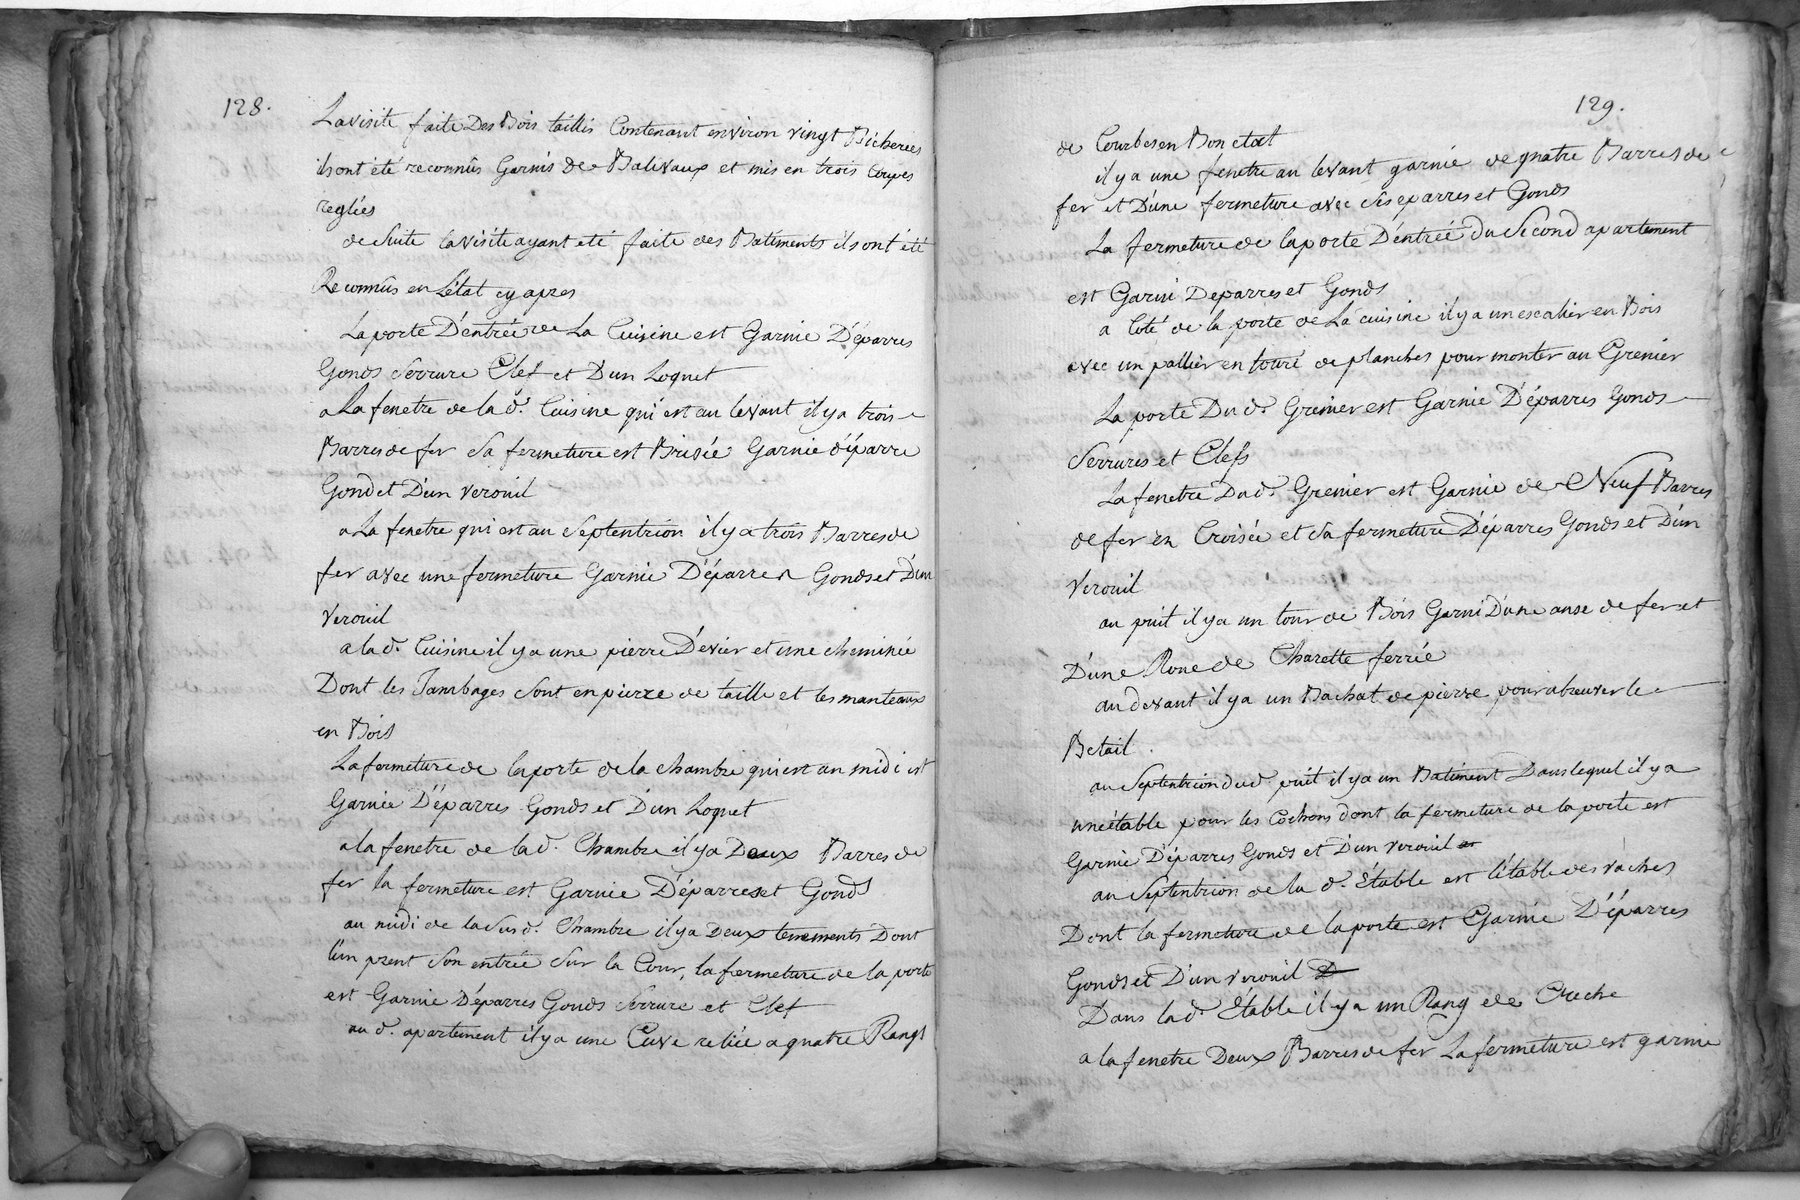 128.
La visite faite Des Bois taillis Contenant environ vingt Bicherées
ils ont été reconnûs Garnis de Balivaux et mis en trois Coupes
reglées
de Suite la visite ayant eté faite des Batiments ils ont été
Reconnûs en L'état cy apres
La porte D'entrée de La Cuisine est Garnie D'éparres
Gonds Serrure Clef et D'un Loquet
a La fenetre de la d.e Cuisine qui est au levant il y a trois
Barres de fer Sa fermeture est Brisée Garnie d'éparre
Gond et D'un verouil
a La fenetre qui est au Septentrion il y a trois Barres de
fer avec une fermeture Garnie D'éparres Gonds et D'un
Verouil
a la d.e Cuisine il y a une pierre D'evier et une cheminée
Dont les Jambages Sont en pierre de taille et les manteaux
en Bois
La fermeture de la porte de la chambre qui est au midi est
Garnie D'éparres Gonds et D'un Loquet
a la fenetre de la d.e Chambre il y a Deux Barres de
fer la fermeture est Garnie D'éparres et Gonds
au midi de la Susd.e Chambre il y a Deux tenements Dont
l'un prent Son entrée Sur la Cour, la fermeture de la porte
est Garnie D'éparres Gonds Serrure et Clef
au d. apartement il y a une Cuve reliée a quatre Rangs
129.
de Courbes en Bon etat
il y a une fenetre au levant garnie de quatre Barres de
fer et D'une fermeture avec Ses eparres et Gonds
La fermeture de la porte D'entrée du Second apartement
est Garni D'eparres et Gonds
a Coté de la porte de La cuisine il y a un escalier en Bois
avec un pallier en touré de planches pour monter au Grenier
La porte Du d. Grenier est Garnie D'éparres Gonds
Serrures et Clefs
La fenetre Du d. Grenier est Garnie de Neuf Barres
de fer en Croisée et Sa fermeture D'éparres Gonds et D'un
Verouil
au puit il y a un tour de Bois Garni D'une anse de fer et
D'une Roue de Charette ferrée
au devant il y a un Bachat de pierre pour abreuver le
Betail.
au Septentrion du d. puit il y a un Batiment Dans lequel il y a
une étable pour les Cochons dont la fermeture de la porte est
Garnie D'éparres Gonds et D'un verouil
au Septentrion de la d.e Étable est l'étable des vaches
Dont la fermeture de la porte est Garnie D'éparres
Gonds et D'un verouil
Dans la d.e Etable il y a un Rang de Creche
a la fenetre Deux Barres de fer La fermeture est garnie